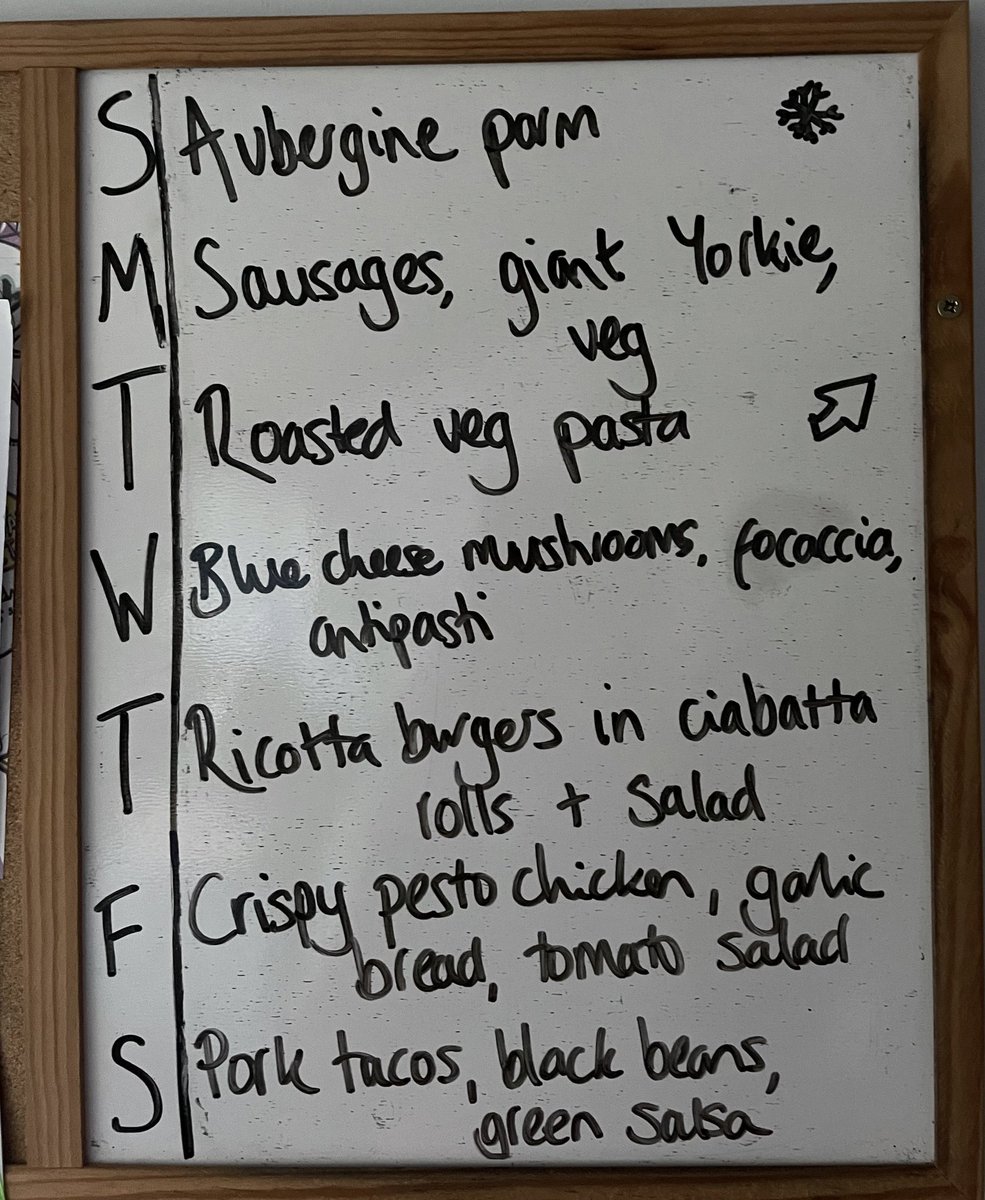 S Aubergine parm
M Sausages, giant Yorkie,
veg
T Roasted veg pasta
W Blue cheese mushrooms, focaccia,
antipasti
T Ricotta burgers in ciabatta
rolls + salad
F Crispy pesto chicken, garlic
bread, tomato salad
S Pork tacos, black beans,
green salsa